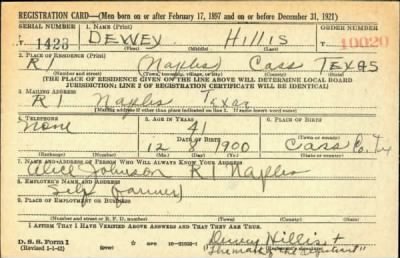 REGISTRATION CARD—(Men born on or after February 17, 1897 and on or before December 31, 1921)
SERIAL NUMBER
1. NAME (Print)
ORDER NUMBER
1423
DEWEY HILLIS
10020
(First) (Middle) (Last)
2. PLACE OF RESIDENCE (Print)
R 1 (Naples) Cass TEXAS
(Number and street) (Town, township, village, or city) (County) (State)
[THE PLACE OF RESIDENCE GIVEN ON THE LINE ABOVE WILL DETERMINE LOCAL BOARD
JURISDICTION; LINE 2 OF REGISTRATION CERTIFICATE WILL BE IDENTICAL]
3. MAILING ADDRESS
R 1 Naples Texas
[Mailing address if other than place indicated on line 2. If same insert word same]
4. TELEPHONE
5. AGE IN YEARS
6. PLACE OF BIRTH
None
41
DATE OF BIRTH
(Town or county)
12 8 1900
Cass Co. Tex
(Exchange) (Number)
(Mo.) (Day) (Yr.)
(State or country)
7. NAME AND ADDRESS OF PERSON WHO WILL ALWAYS KNOW YOUR ADDRESS
Alice Johnson R 1 Naples
8. EMPLOYER'S NAME AND ADDRESS
Self farmer
9. PLACE OF EMPLOYMENT OR BUSINESS
(Number and street or R. F. D. number) (Town) (County) (State)
I AFFIRM THAT I HAVE VERIFIED ABOVE ANSWERS AND THAT THEY ARE TRUE.
D. S. S. Form 1
(Revised 1-1-42)
(over)
Dewey Hillis +
The mark of the registrant